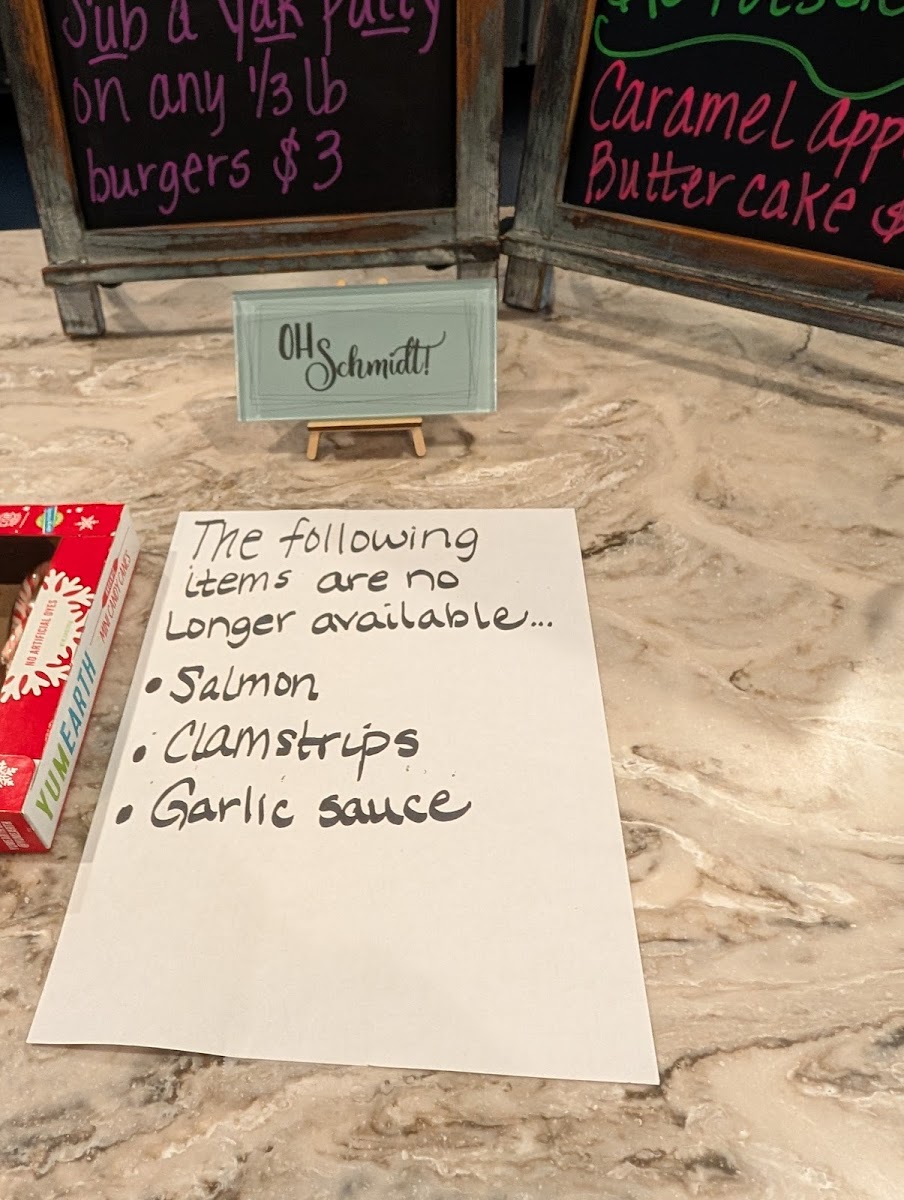 Sub a Yak Patty
on any 1/3 lb
burgers $3
Caramel App
Butter cake $
OH
Schmidt!
The following
items are no
Longer available...
• Salmon
• Clamstrips
• Garlic sauce
NO ARTIFICIAL DYES
YUMEARTH
MINI CANDY CANES